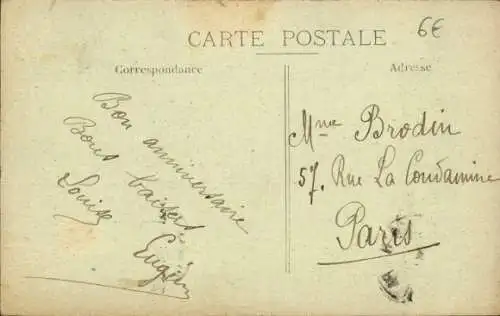 CARTE POSTALE
6€
Correspondance
Adresse
Bon anniversaire
Bons baisers
Louise
Eugène
Mme Brodin
57. Rue La Condamine
Paris